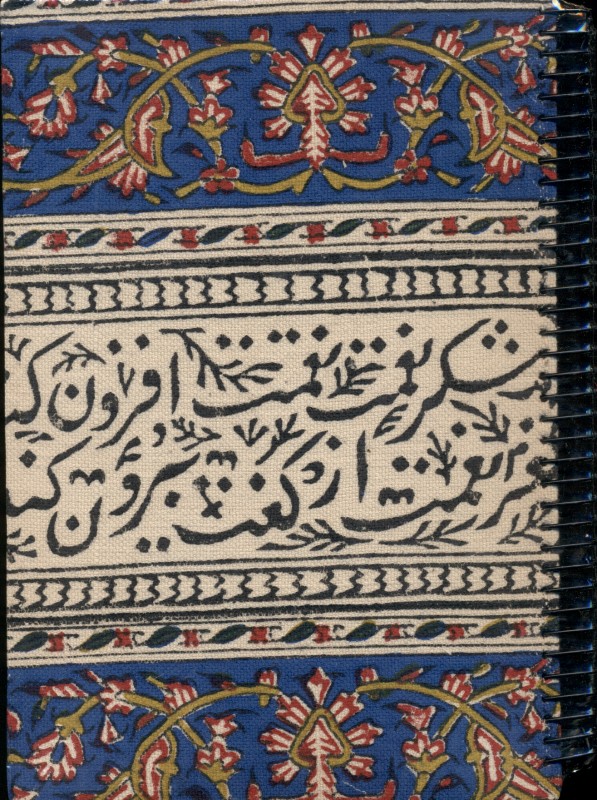 شکر نعمت نعمت افزون کند
کفر نعمت از کفت بیرون کند